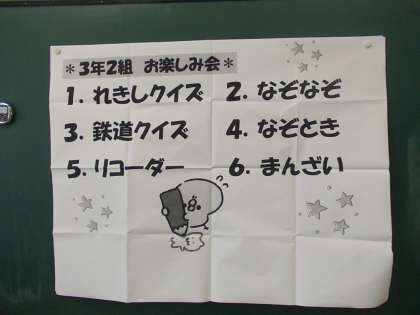 ＊3年2組 お楽しみ会＊
1. れきしクイズ 2. なぞなぞ
3. 鉄道クイズ 4. なぞとき
5. リコーダー 6. まんざい